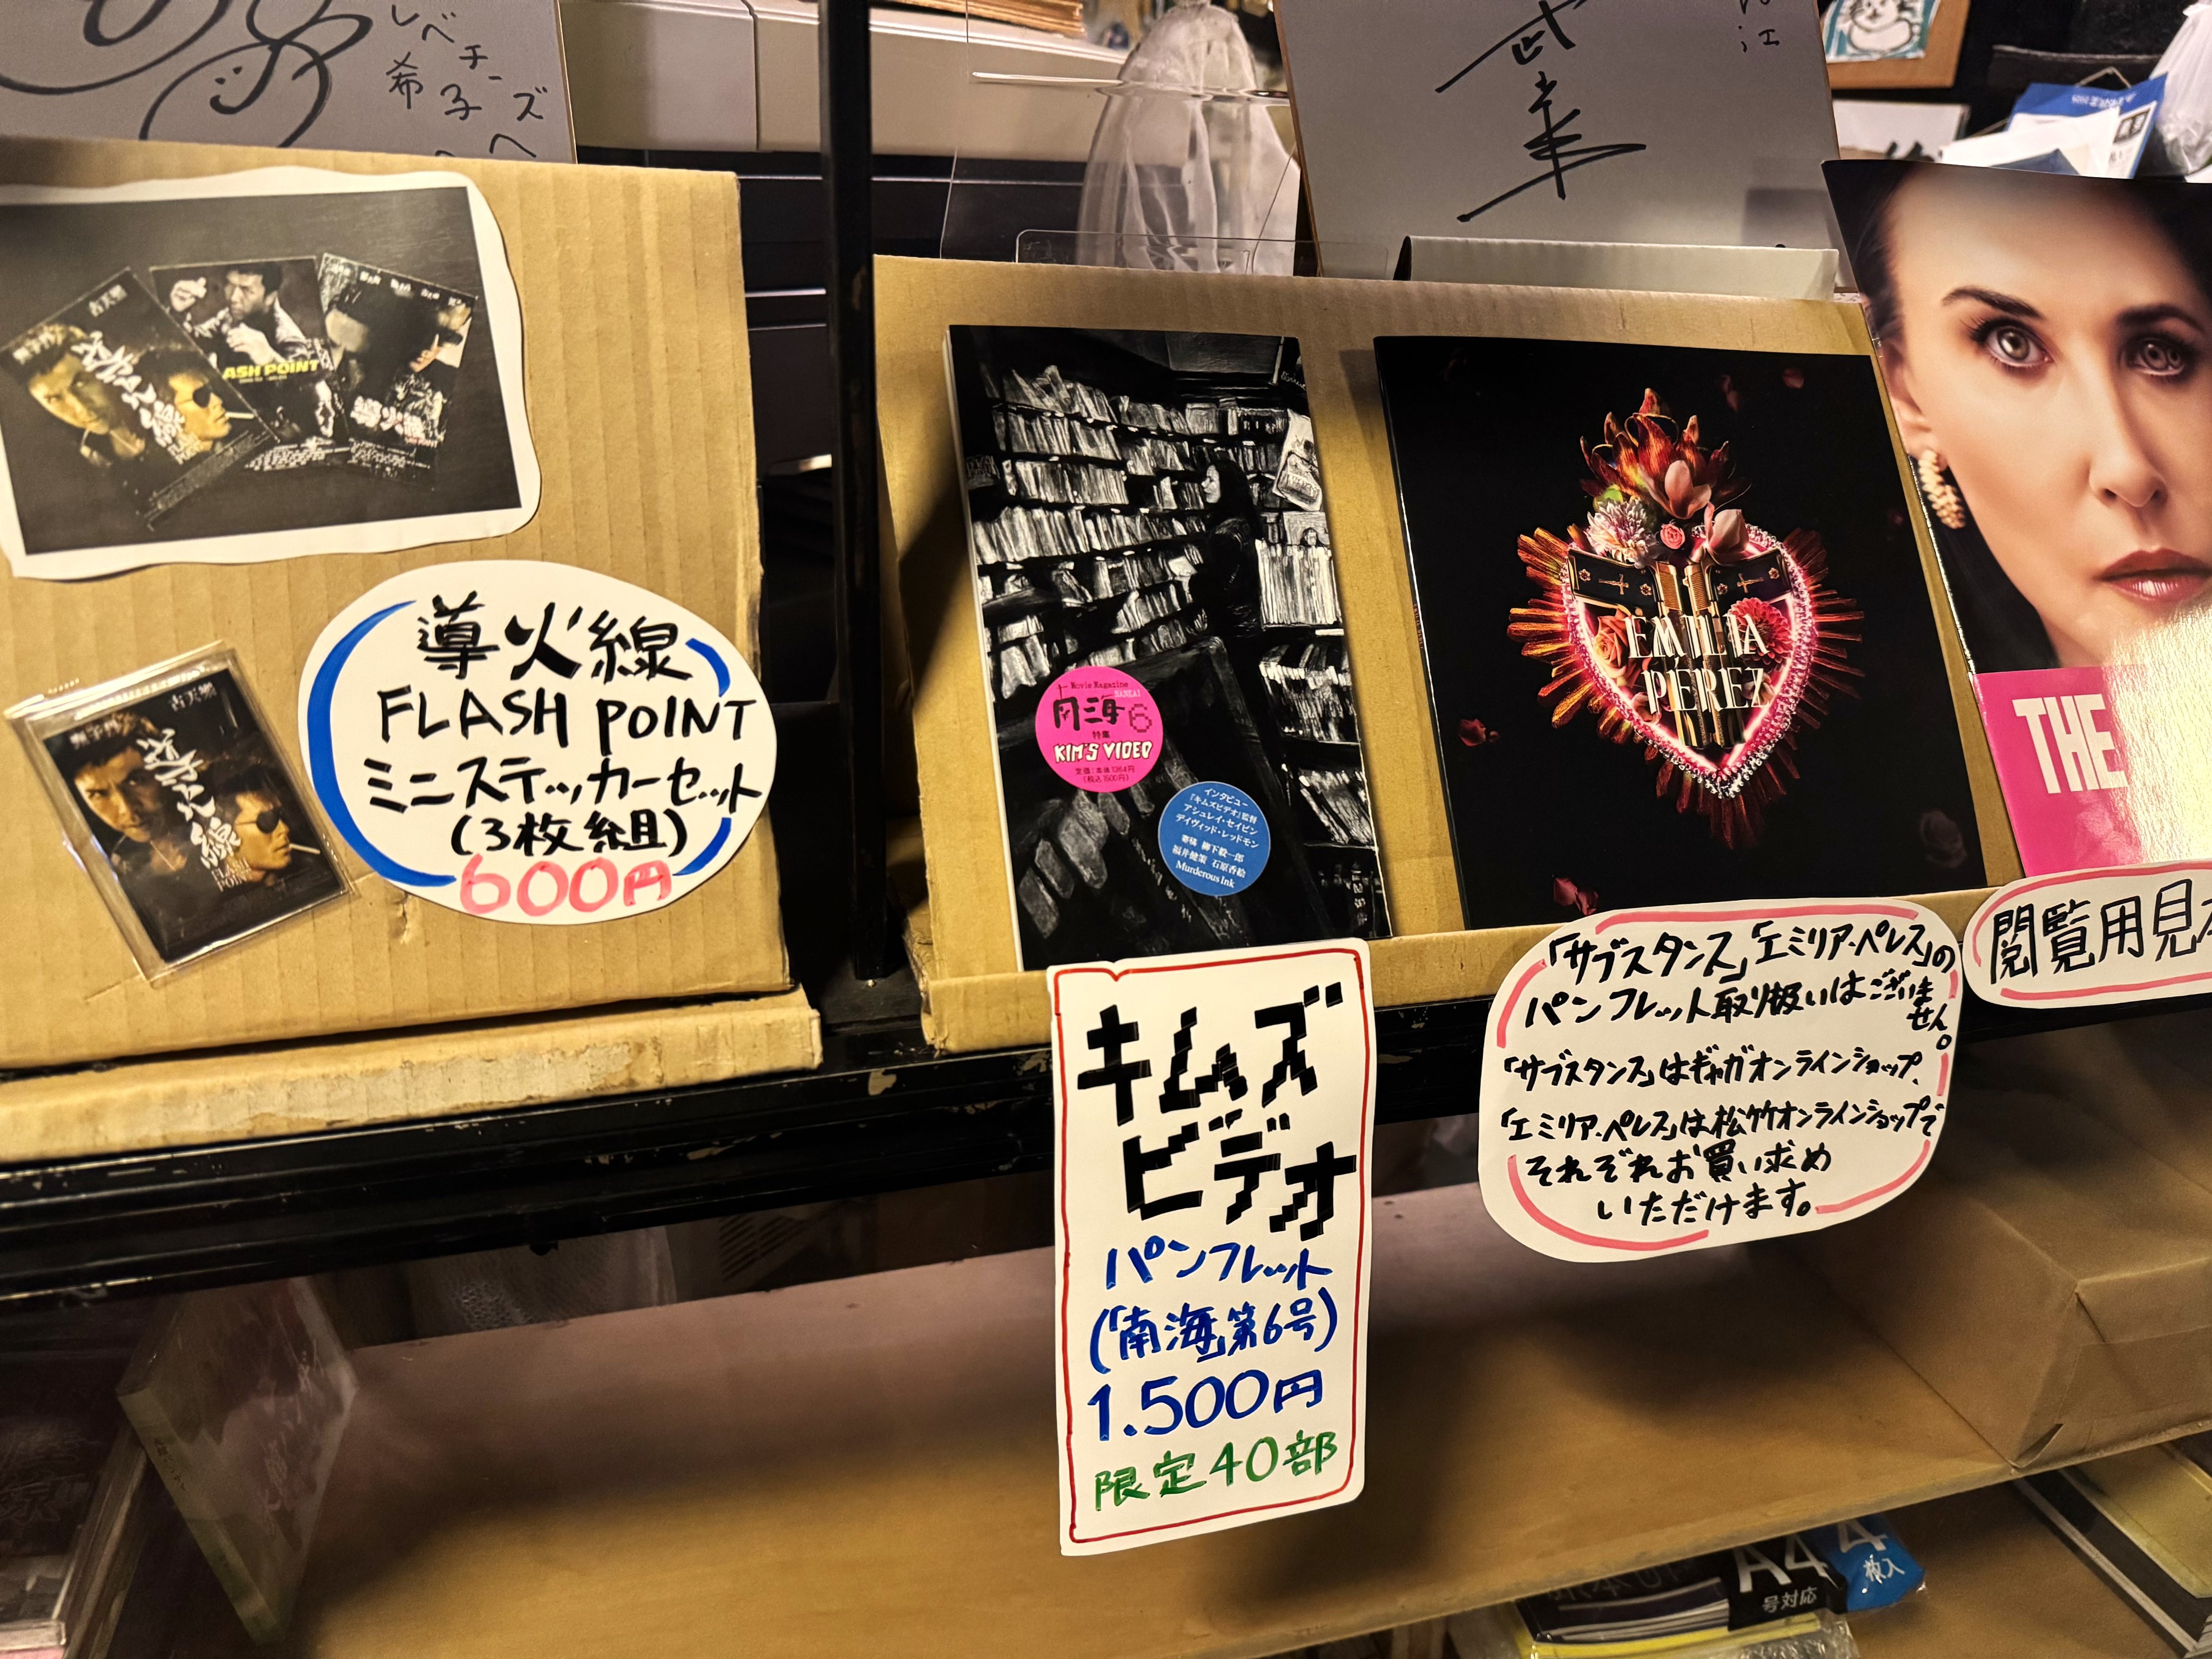 レベチーズ
希子
武業
古天樂
導火線
FLASH POINT
ASH POINT
導火線
古天樂
導火線
FLASH
POINT
導火線
FLASH POINT
ミニステッカーセット
(3枚組)
600円
Movie Magazine
南海6
NANKAI
特集
KIM'S VIDEO
定価:本体1364円
(税込1500円)
インタビュー
『キムズビデオ』監督
アシュレイ・セイビン
デイヴィッド・レッドモン
寄稿 柳下毅一郎
福井健策 石原香絵
Murderous Ink
キムズ
ビデオ
パンフレット
(「南海」第6号)
1.500円
限定40部
EMILIA
PÉREZ
「サブスタンス」「エミリア・ペレス」の
パンフレット取り扱いはございません。
「サブスタンス」はギャガオンラインショップ、
「エミリア・ペレス」は松竹オンラインショップで
それぞれお買い求め
いただけます。
THE
閲覧用見
A4
号対応
4
枚入